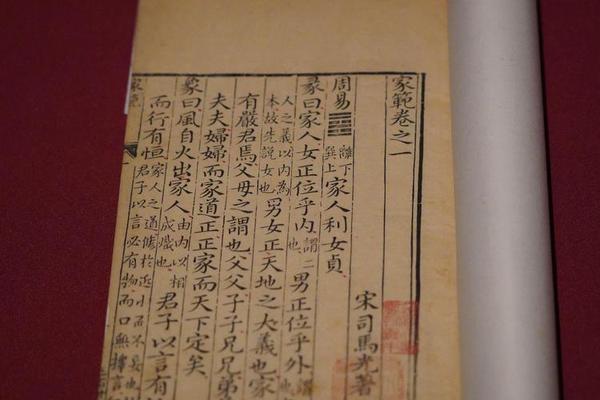 家範卷之一
宋司馬光著
周易䷤離下巽上家人利女貞
彖曰家人女正位乎內謂二也男正位乎外謂也
人之義以內為本故先說女也男女正天地之大義也家
有嚴君焉父母之謂也父父子子兄兄弟
夫夫婦婦而家道正正家而天下定矣
象曰風自火出家人由內以相成熾也君子以言有
而行有恒家人之道修於近小而不妄也君子以言必有物而口無擇言
家範